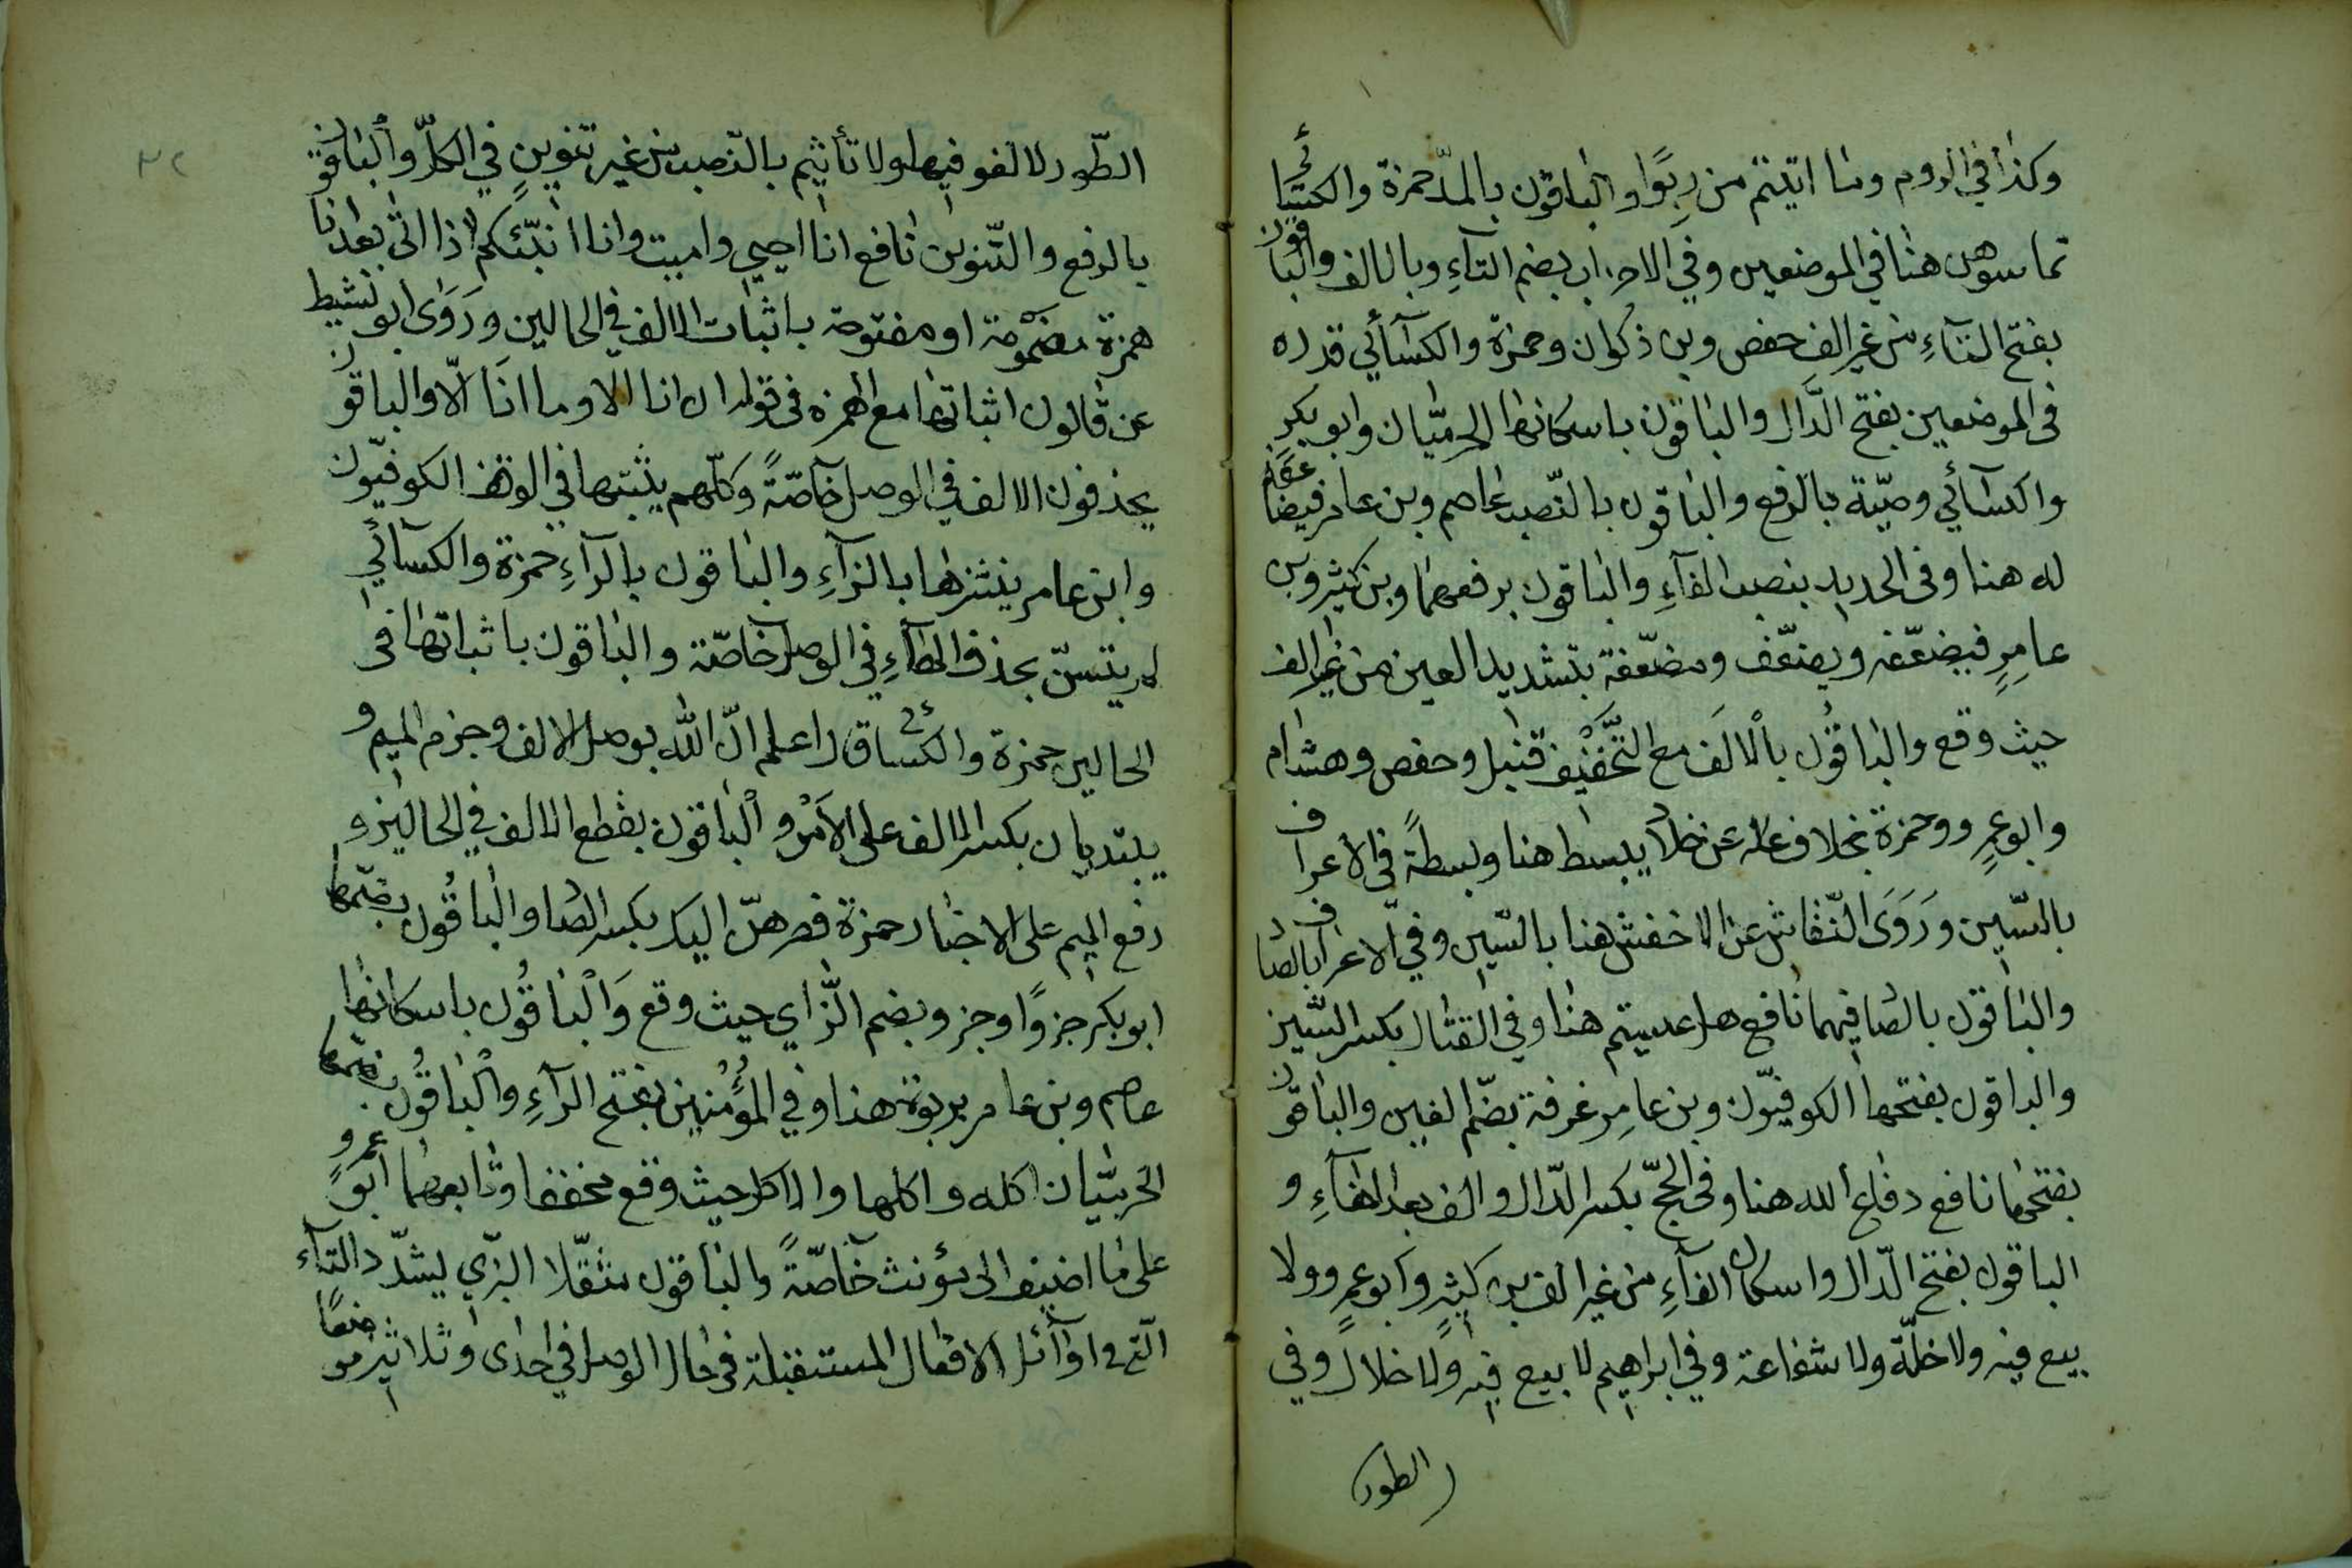 وكذا في الروم وما اتيتم من ربًوا والباقون بالمدّ حمزة والكسائي
تماسوهن هنا في الموضعين وفي الاحزاب بضم التآءِ وبالالف والباقون
بفتح التآءِ من غير الف حفص وبن ذكوان وحمزة والكسآئي قدره
فى الموضعين بفتح الدَّال والباقون باسكانها الحرميّان وابو بكرٍ
والكسآئي وصيّة بالرفع والباقون بالنّصب عاصم وبن عامر فيضاعفه
له هنا وفى الحديد بنصب الفآءِ والباقون برفعهما وبن كثير وبن
عامِرٍ فيضعّفه ويضعّف ومضعّفة بتشديد العين من غير الف
حيث وقع والباقُون بالْالَف مع التَّخْفيف قنبل وحفص وهشام
وابو عمرٍو وحمزة بخلاف عنه عن خلاد يبسط هنا وبسطةً في الاعراف
بالسّين ورَوَى النّقاش عن الاخفش هنا بالسّين وفي الاعراف بالصاد
والباقون بالصاد فيهما نافع هل عسيتم هنا وفي القتال بكسر السّين
والباقون بفتحها الكوفيّون وبن عامِر غرفة بضّم الغين والباقون
بفتحها نافع دفاع الله هنا وفى الحجّ بكسر الدّال والف بعد الفآءِ و
الباقون بفتح الدّال واسكان الفآءِ من غير الف بن كثيرٍ وابو عمرٍو ولا
بيع فيه ولا خلّة ولا شفاعة وفي ابراهيم لا بيع فيه ولا خلال وفي
الطور
٣٢
الطّور لا لغو فيها ولا تأثيم بالنّصب من غير تنوينٍ في الكلّ والباقون
بالرفع والتّنوين نافع انا احيي واميت وانا انبّئكم اذا اتى بعد انا
همزة مضمومة او مفتوحة باثبات الالف في الحالين ورَوَى ابو نشيط
عن قالون اثباتها مع الهمزه فى قوله ان انا الا وما انَا الّا والباقون
يحذفون الالف في الوصل خآصّةً وكلّهم يثبتها في الوقف الكوفيّون
وابن عامر ننشزها بالزآءِ والباقون بالرآءِ حمزة والكسآئي
لم يتسنّ بحذف الهآءِ في الوصل خآصّة والباقون باثباتها فى
الحالين حمزة والكسائي قال اعلم انّ الله بوصل الالف وجزم الميم و
يبتديان بكسر الالف على الاَمْر والْباقون بقطع الالف في الحالين و
رفع الميم على الاخبار حمزة فصرهنّ اليك بكسر الصاد والباقُون بضّمها
ابو بكر جزوًا وجزو بضم الزّاي حيث وقع وَالْباقُون باسكانها
عاصم وبن عامر بربوة هنا وفي المؤُمنين بفتح الرآءِ والْباقُون بضمها
الحرميّيان اكله واكلها والاكل حيث وقع مخففا وتابعهما ابو عمروٍ
على ما اضيف الى مؤنث خآصّةً والباقون مثقّلا البزّي يشدّد التآء
الّتي في اوآئل الافعال المستقبلة فى حال الوصل في احدى وثلاثين موضعًا